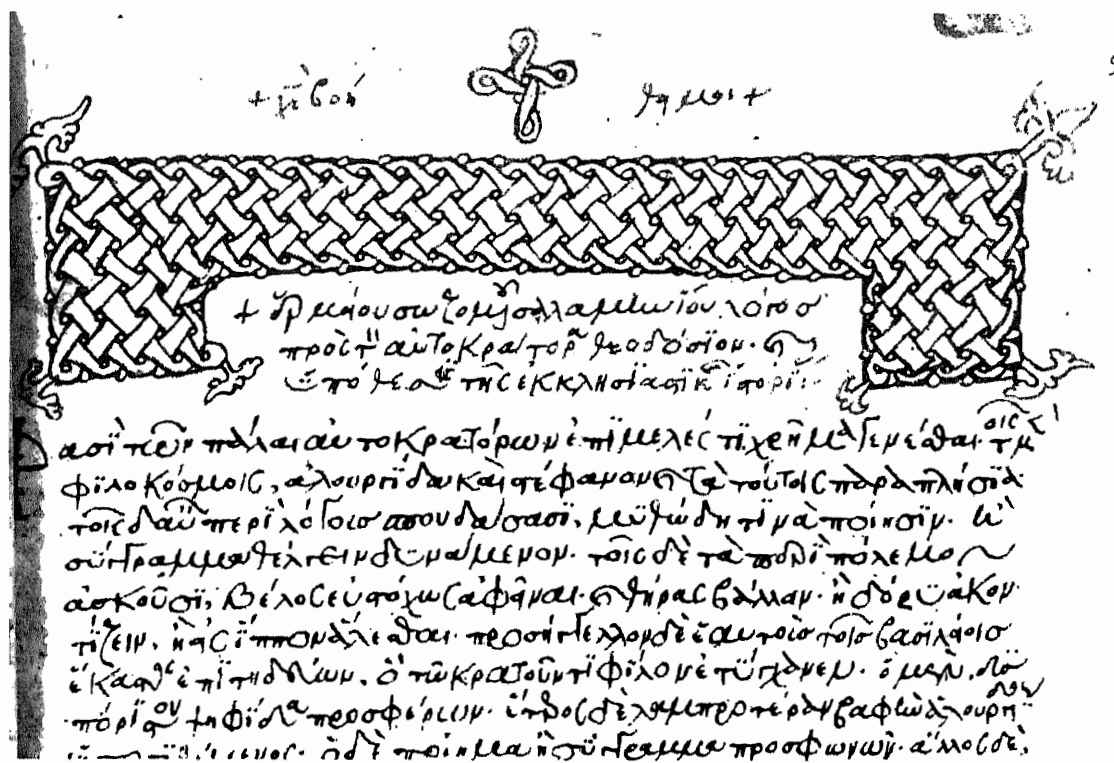 + χ̅ε̅ βοή θη μοι +
+ ἑρμείου σωζομενοῦ σαλαμινίου λόγος
πρὸς τὸν αὐτοκράτορα θεοδόσϊον· καὶ
ὑπόθεσις τῆς ἐκκλησιαστικῆς ἱστορίας:
ασὶ τῶν πάλαι αὐτοκρατόρων ἐπιμελές τι χρῆμα γενέσθαι· τοῖς μὲν
φϊλοκόσμοις, ἁλουργίδα καὶ στέφανον καὶ τὰ τούτοις παραπλήσϊα·
τοῖς δ αὖ περὶ λόγους σπουδάσασι, μυθώδη τινὰ ποίησϊν· ἢ
σύγγραμμα θέλγειν δυνάμενον· τοῖς δὲ τὰ περὶ πόλεμον
ἀσκοῦσϊ, βέλος εὐστόχως ἀφεῖναι· καὶ θῆρας βάλλειν· ἢ δόρυ ἀκον
τίζειν, ἢ εἰς ἵππον ἅλεσθαι· προσήγγελλον δὲ ἑαυτοῖς τοῖς βασιλείοις
ἕκαστος ἐπιτηδεύων, ὃ τῶ κρατοῦντι φίλον ἐτύγχανεν· ὁ μὲν, δυσ
πόριστον ψηφίδα προσφέρων· ἕτερος δὲ λαμπροτέραν βαφὴν ἁλουργίδος
ὁ δὲ ποίημα ἢ σύγγραμμα προσφωνῶν· ἄλλος δὲ,